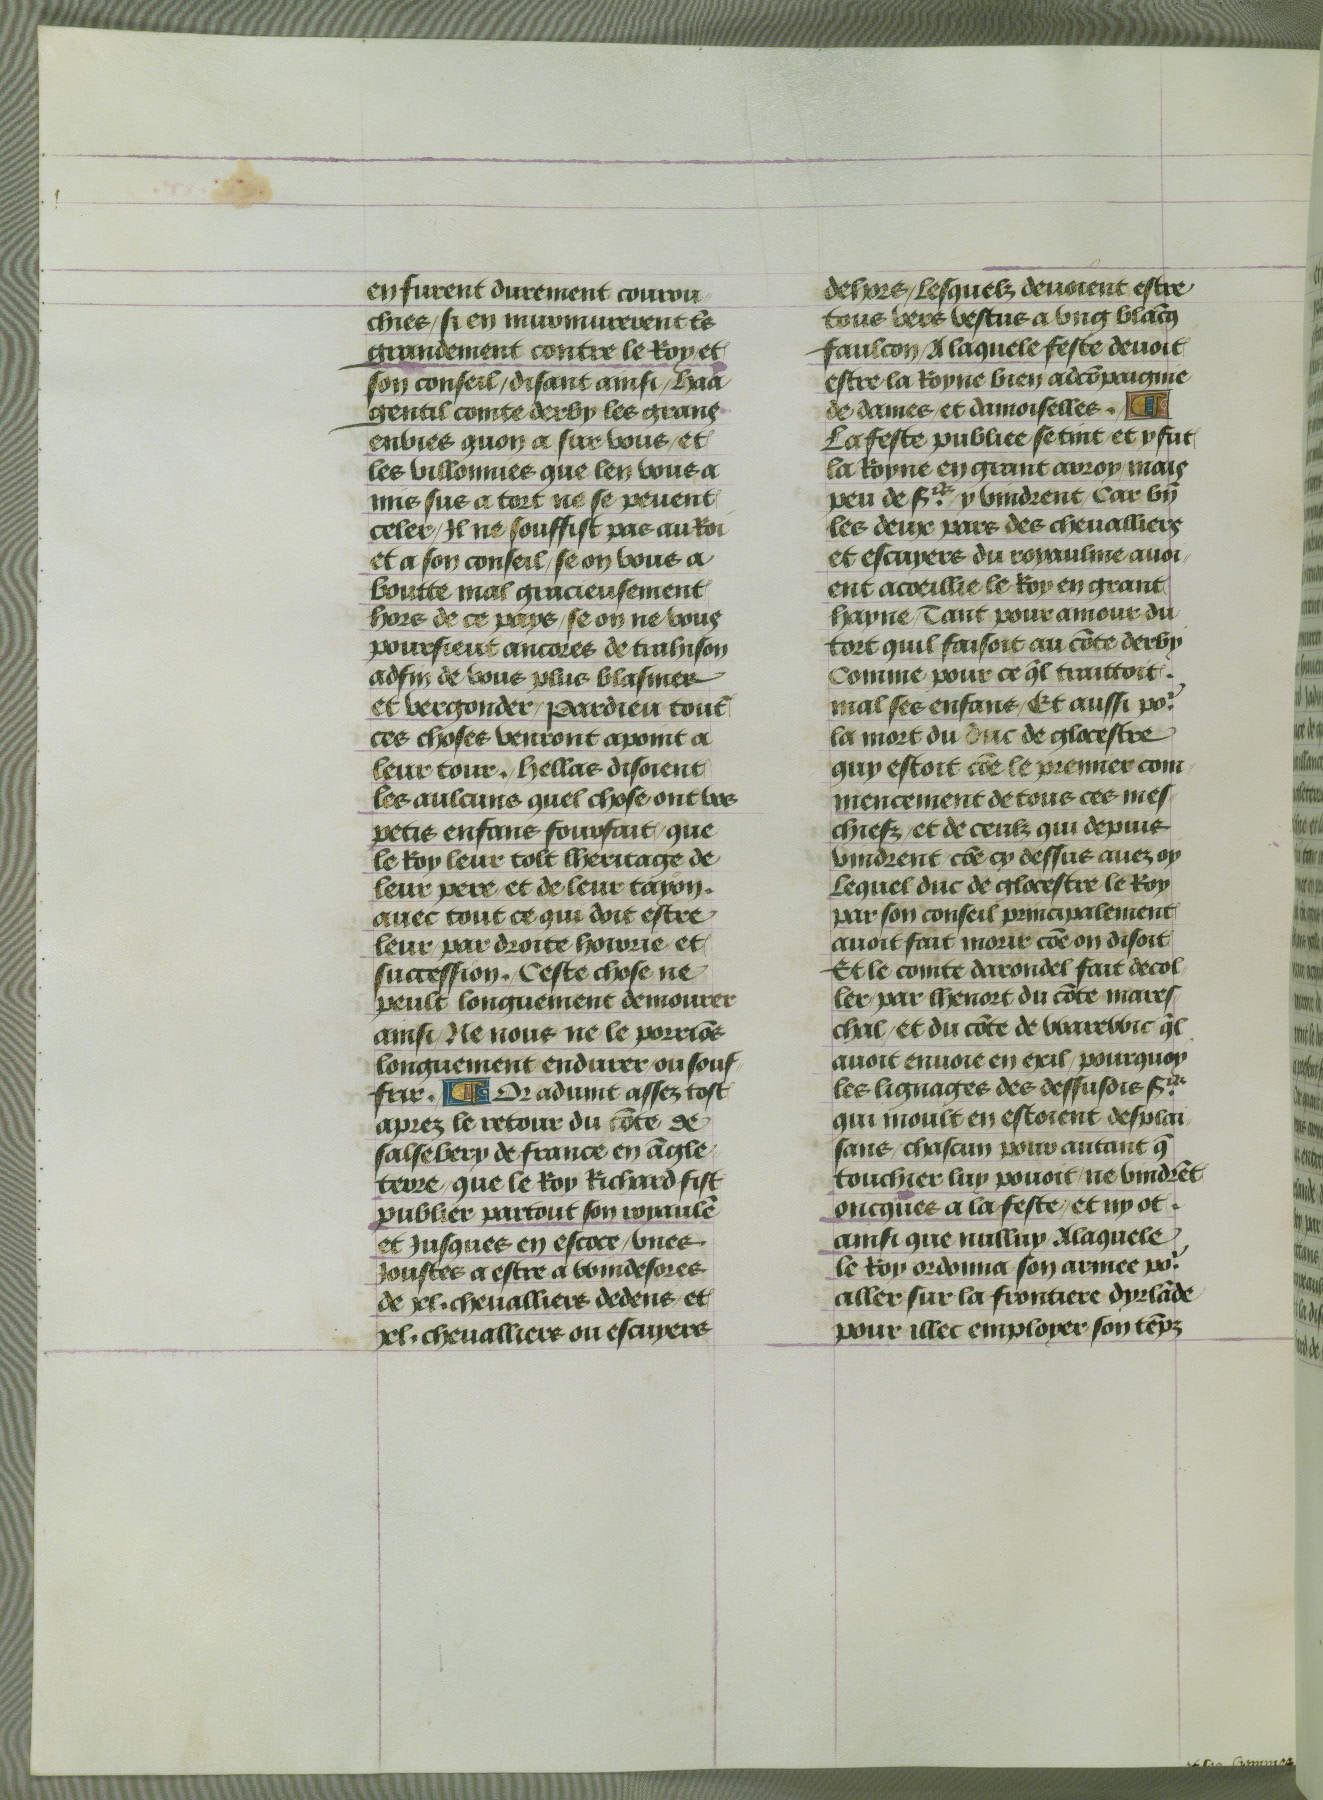 en furent durement courou
chies / si en murmurerent tˀs
grandement contre le Roy et
son conseil / disant ainsi / haa
gentil comte derby les grans
enbies quon a sur vous / et
les villonnies que len vous a
mis sus a tort ne se peuent
celer / Il ne souffist pas au Roi
et a son conseil / se on vous a
boutte mal gracieusement
hors de ce pays / se on ne vous
poursieut ancores de trahison
adfin de vous plus blasmer
et vergonder / Pardieu toutˉ
ces choses venront a point a
leur tour . hellas disoient
les aulcuns quel chose ont vos
petis enfans fourfait / que
le Roy leur tolt lheritage de
leur pere / et de leur tayon .
auec tout ce qui doit estre
leur par droite hoirrie / et
succession . Ceste chose ne
peult longuement demourer
ainsi / Ne nous ne le porriōs
longuement endurer / ou souf
frir . Or aduint assez tost
aprez le retour du cōte de
salsebery de france en āgle
terre / que le Roy Richard fist
publier partout son royaulē
et Jusques en escoce / vnes
Joustes a estre a windesores
de xl . cheualliers dedens / et
xl . cheualliers ou escuyers
dehors / Lesquelz deuoient estre
tous vers vestus a vng blācq
faulcon / A laquele feste deuoit
estre la Royne bien adcōpaignie
de dames / et damoiselles .
La feste publiee se tint / et y fut
la Royne en grant arroy / mais
peu de Srˢ y vindrent / Car byn̄
les deux pars des cheualliers
et escuyers du royaulme auoi
ent acoeillie le Roy en grant
hayne / Tant pour amour du
tort quil faisoit au cōte derby
Comme pour ce ql̄ traittoit .
mal ses enfans / Et aussi poʳ
la mort du duc de glocestre
quy estoit cōe le premier com
mencement de tous ces mes
chiefz / et de ceulz qui depuis
vindrent cōe cy dessus auez oy
Lequel duc de glocestre le Roy
par son conseil principalement
auoit fait morir cōe on disoit
Et le comte darondel fait decol
ler / par lhenort du cōte mares
chal / et du cōte de warewic ql̄
auoit enuoie en exil / pourquoy
les lignages des dessusdis Srˢ
qui moult en estoient desplai
sans / chascun pour autant q̄
touchier luy pouoit / ne vindrēt
oncques a la feste / et ny ot .
ainsi que nulluy / A laquele
le Roy ordonna son armee poʳ
aller sur la frontiere dyrlāde
pour illec employer son tēpz